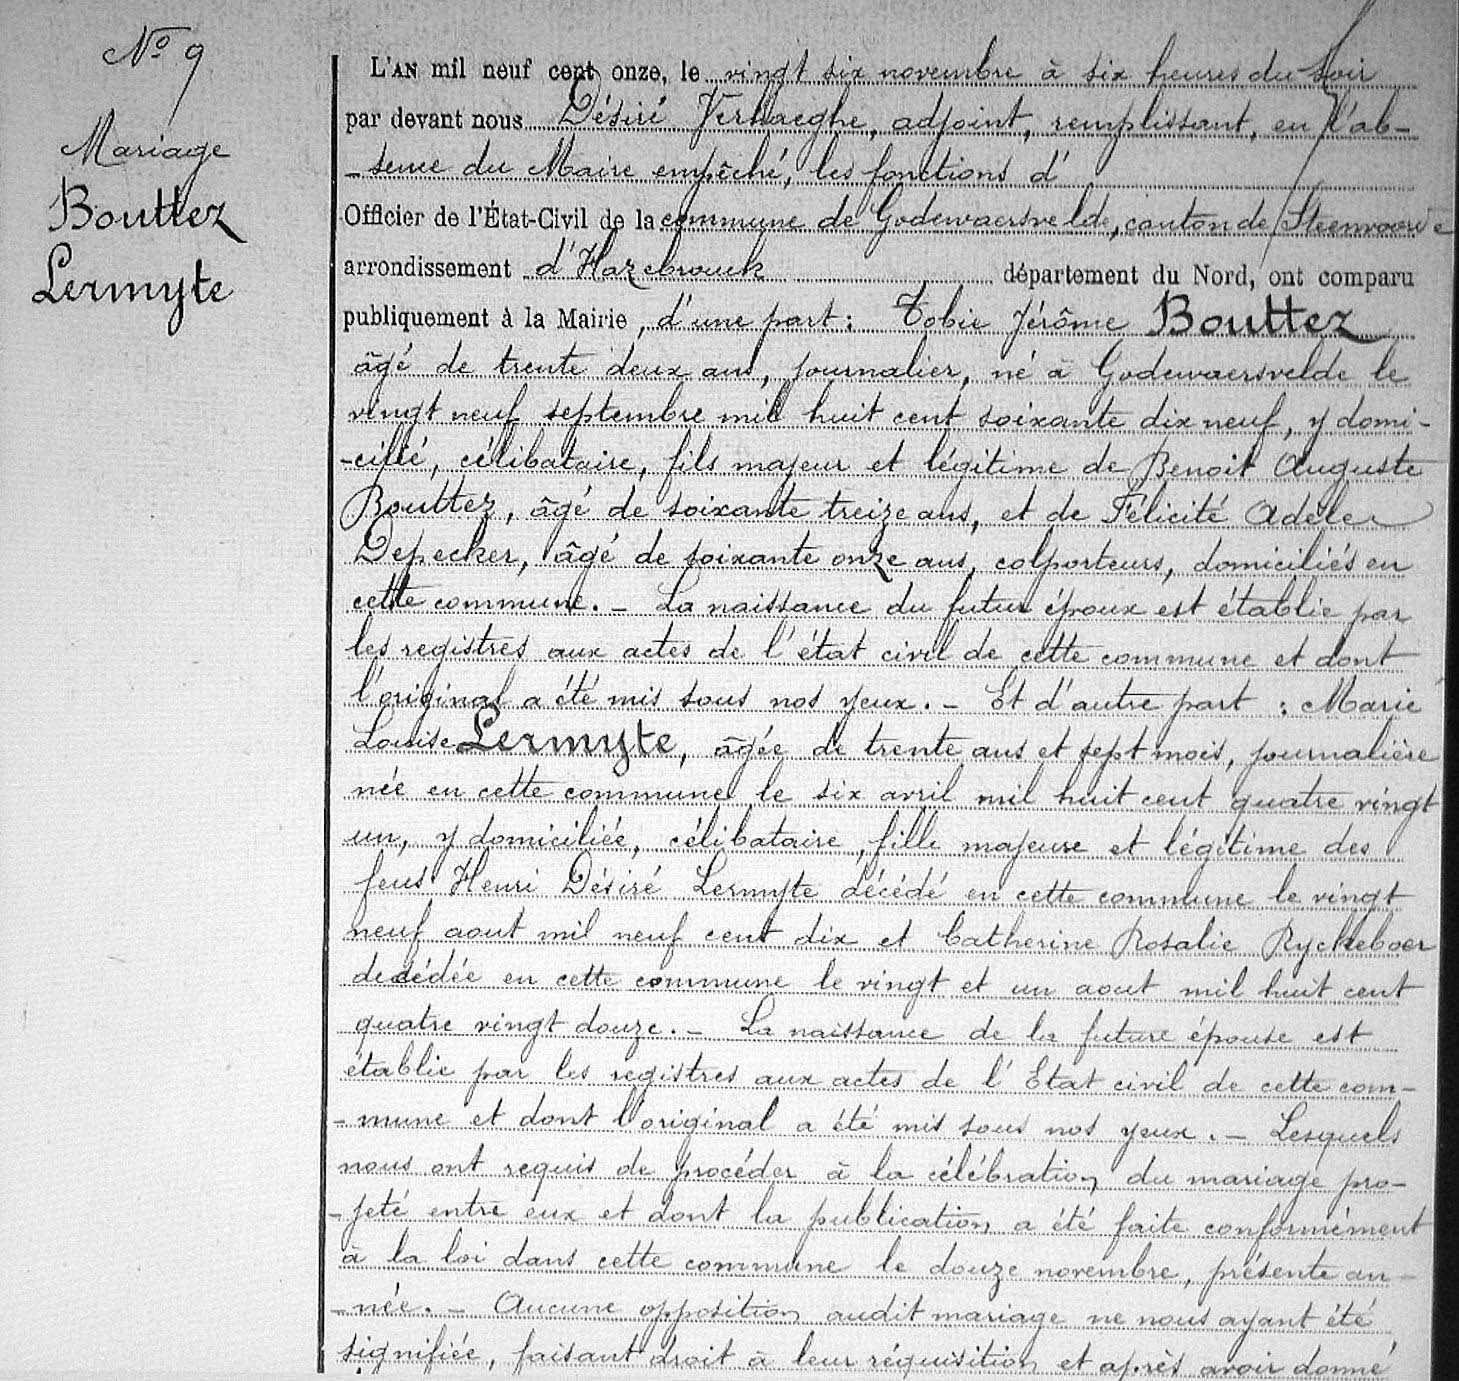 N° 9
Mariage
Bouttez
Lermyte
L'AN mil neuf cent onze, le vingt six novembre à six heures du soir
par devant nous Désiré Verhaeghe, adjoint, remplissant, en l'ab-
-sence du Maire empêché, les fonctions d'
Officier de l'État-Civil de la commune de Godewaersvelde, canton de Steenvoorde
arrondissement d'Hazebrouck département du Nord, ont comparu
publiquement à la Mairie, d'une part : Tobie Jérôme Bouttez
âgé de trente deux ans, journalier, né à Godewaersvelde le
vingt neuf septembre mil huit cent soixante dix neuf, y domi-
-cilié, célibataire, fils majeur et légitime de Benoit Auguste
Bouttez, âgé de soixante treize ans, et de Félicité Adèle
Depecker, âgé de soixante onze ans, colporteurs, domiciliés en
cette commune. - La naissance du futur époux est établie par
les registres aux actes de l'état civil de cette commune et dont
l'original a été mis sous nos yeux. - Et d'autre part : Marie
Louise Lermyte, âgée de trente ans et sept mois, journalière
née en cette commune le six avril mil huit cent quatre vingt
un, y domiciliée, célibataire, fille majeure et légitime des
feus Henri Désiré Lermyte décédé en cette commune le vingt
neuf aout mil neuf cent dix et Catherine Rosalie Ryckeboer
décédée en cette commune le vingt et un aout mil huit cent
quatre vingt douze. - La naissance de la future épouse est
établie par les registres aux actes de l'Etat civil de cette com-
-mune et dont l'original a été mis sous nos yeux. - Lesquels
nous ont requis de procéder à la célébration du mariage pro-
-jeté entre eux et dont la publication a été faite conformément
à la loi dans cette commune le douze novembre, présente an-
-née. - Aucune opposition audit mariage ne nous ayant été
signifiée, faisant droit à leur réquisition et après avoir donné